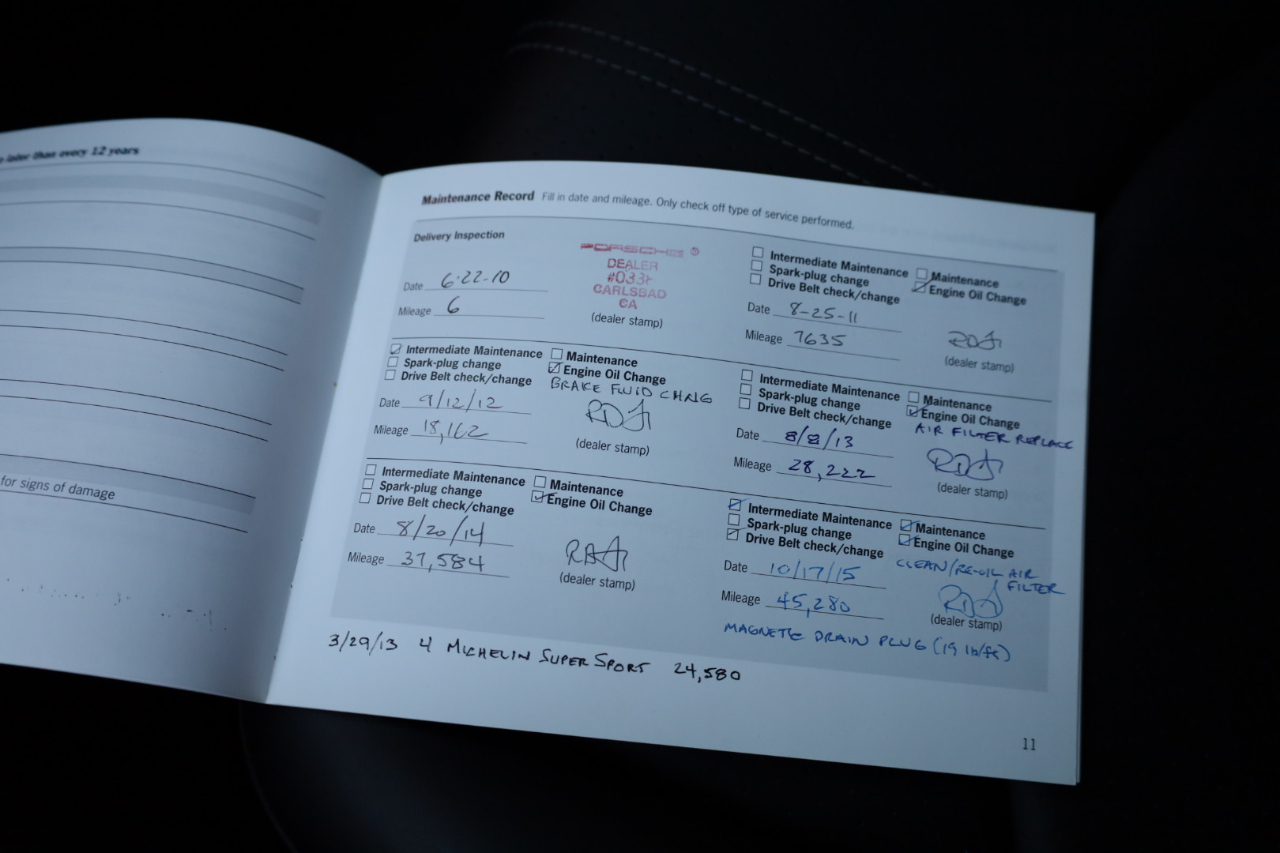 later than every 12 years
for signs of damage
Maintenance Record Fill in date and mileage. Only check off type of service performed.
Delivery Inspection
Date 6-22-10
Mileage 6
PORSCHE
DEALER
CARLSBAD
CA
(dealer stamp)
Intermediate Maintenance
Spark-plug change
Drive Belt check/change
Maintenance
Engine Oil Change
Date 8-25-11
Mileage 7635
(dealer stamp)
Intermediate Maintenance
Spark-plug change
Drive Belt check/change
Maintenance
Engine Oil Change
BRAKE FLUID CHNG
Date 9/12/12
Mileage 18,162
(dealer stamp)
Intermediate Maintenance
Spark-plug change
Drive Belt check/change
Maintenance
Engine Oil Change
AIR FILTER REPLACE
Date 8/8/13
Mileage 28,222
(dealer stamp)
Intermediate Maintenance
Spark-plug change
Drive Belt check/change
Maintenance
Engine Oil Change
Date 8/20/14
Mileage 37,584
(dealer stamp)
Intermediate Maintenance
Spark-plug change
Drive Belt check/change
Maintenance
Engine Oil Change
CLEAN/RE-OIL AIR
FILTER
Date 10/17/15
Mileage 45,280
(dealer stamp)
MAGNETIC DRAIN PLUG (19 lb/ft)
3/29/13 4 MICHELIN SUPER SPORT 24,580
11